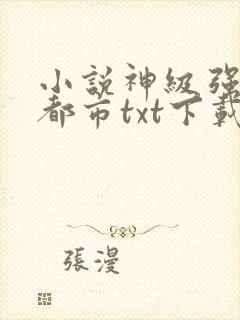 小說神級強
都市txt下載
張漫